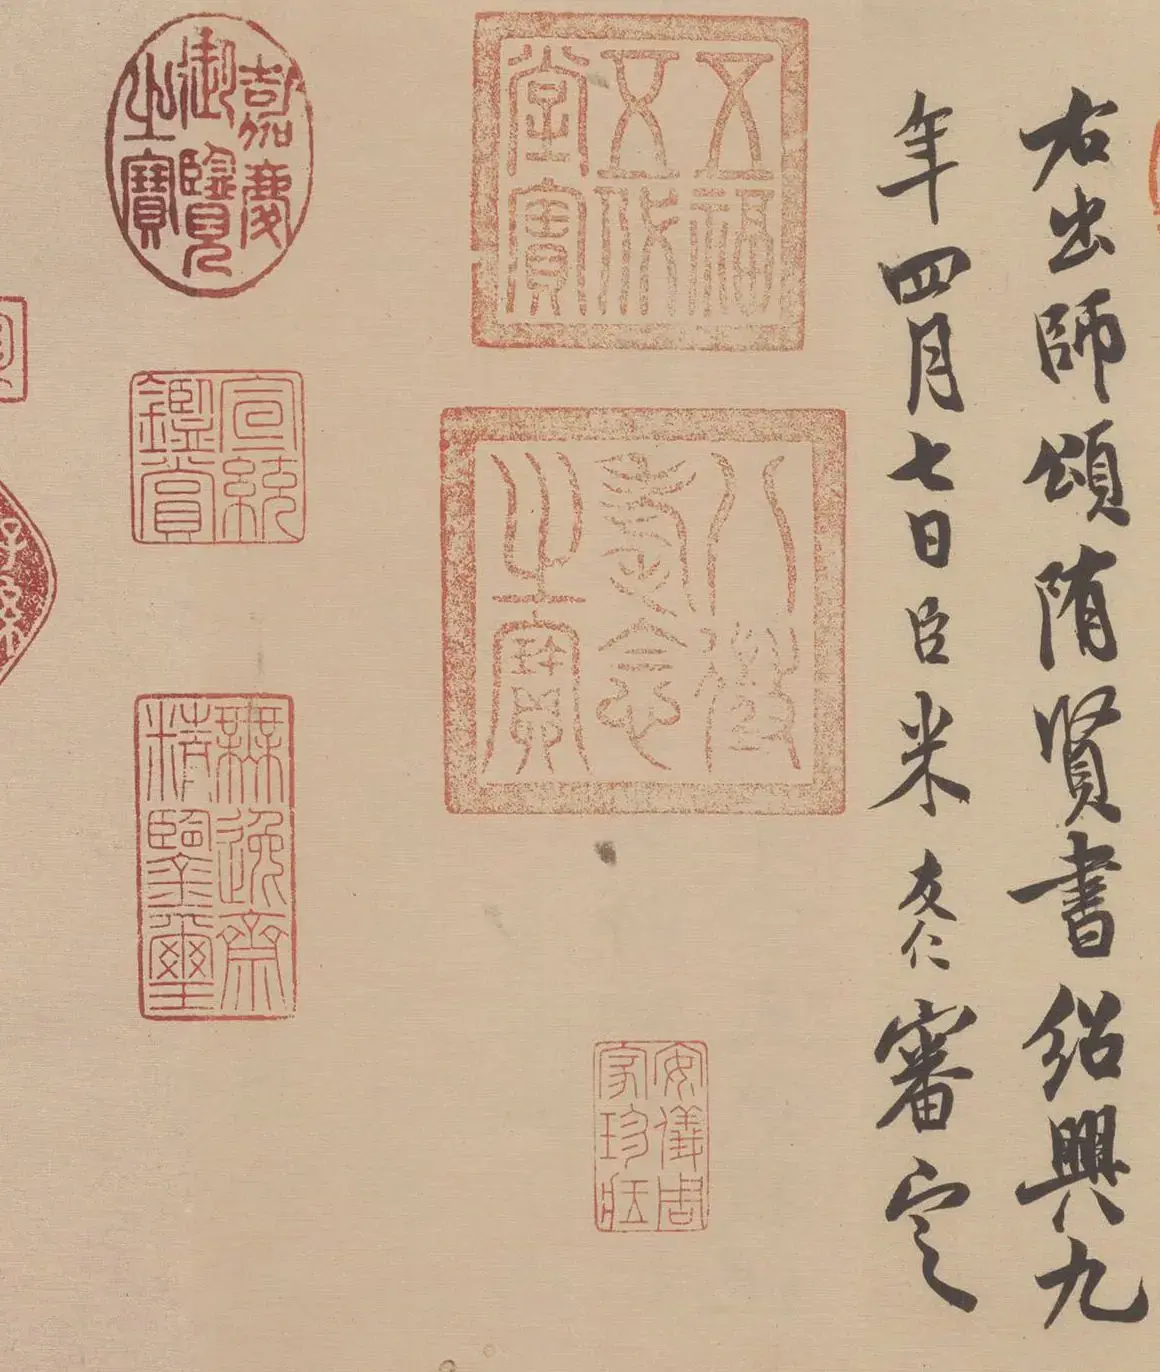 右出師頌隋賢書紹興九
年四月七日臣米友仁審定
五福五代堂寶
八徵耄念之寶
安儀周家珍藏
嘉慶御覽之寶
宣統鑑賞
無逸齋精鑒璽
子孫